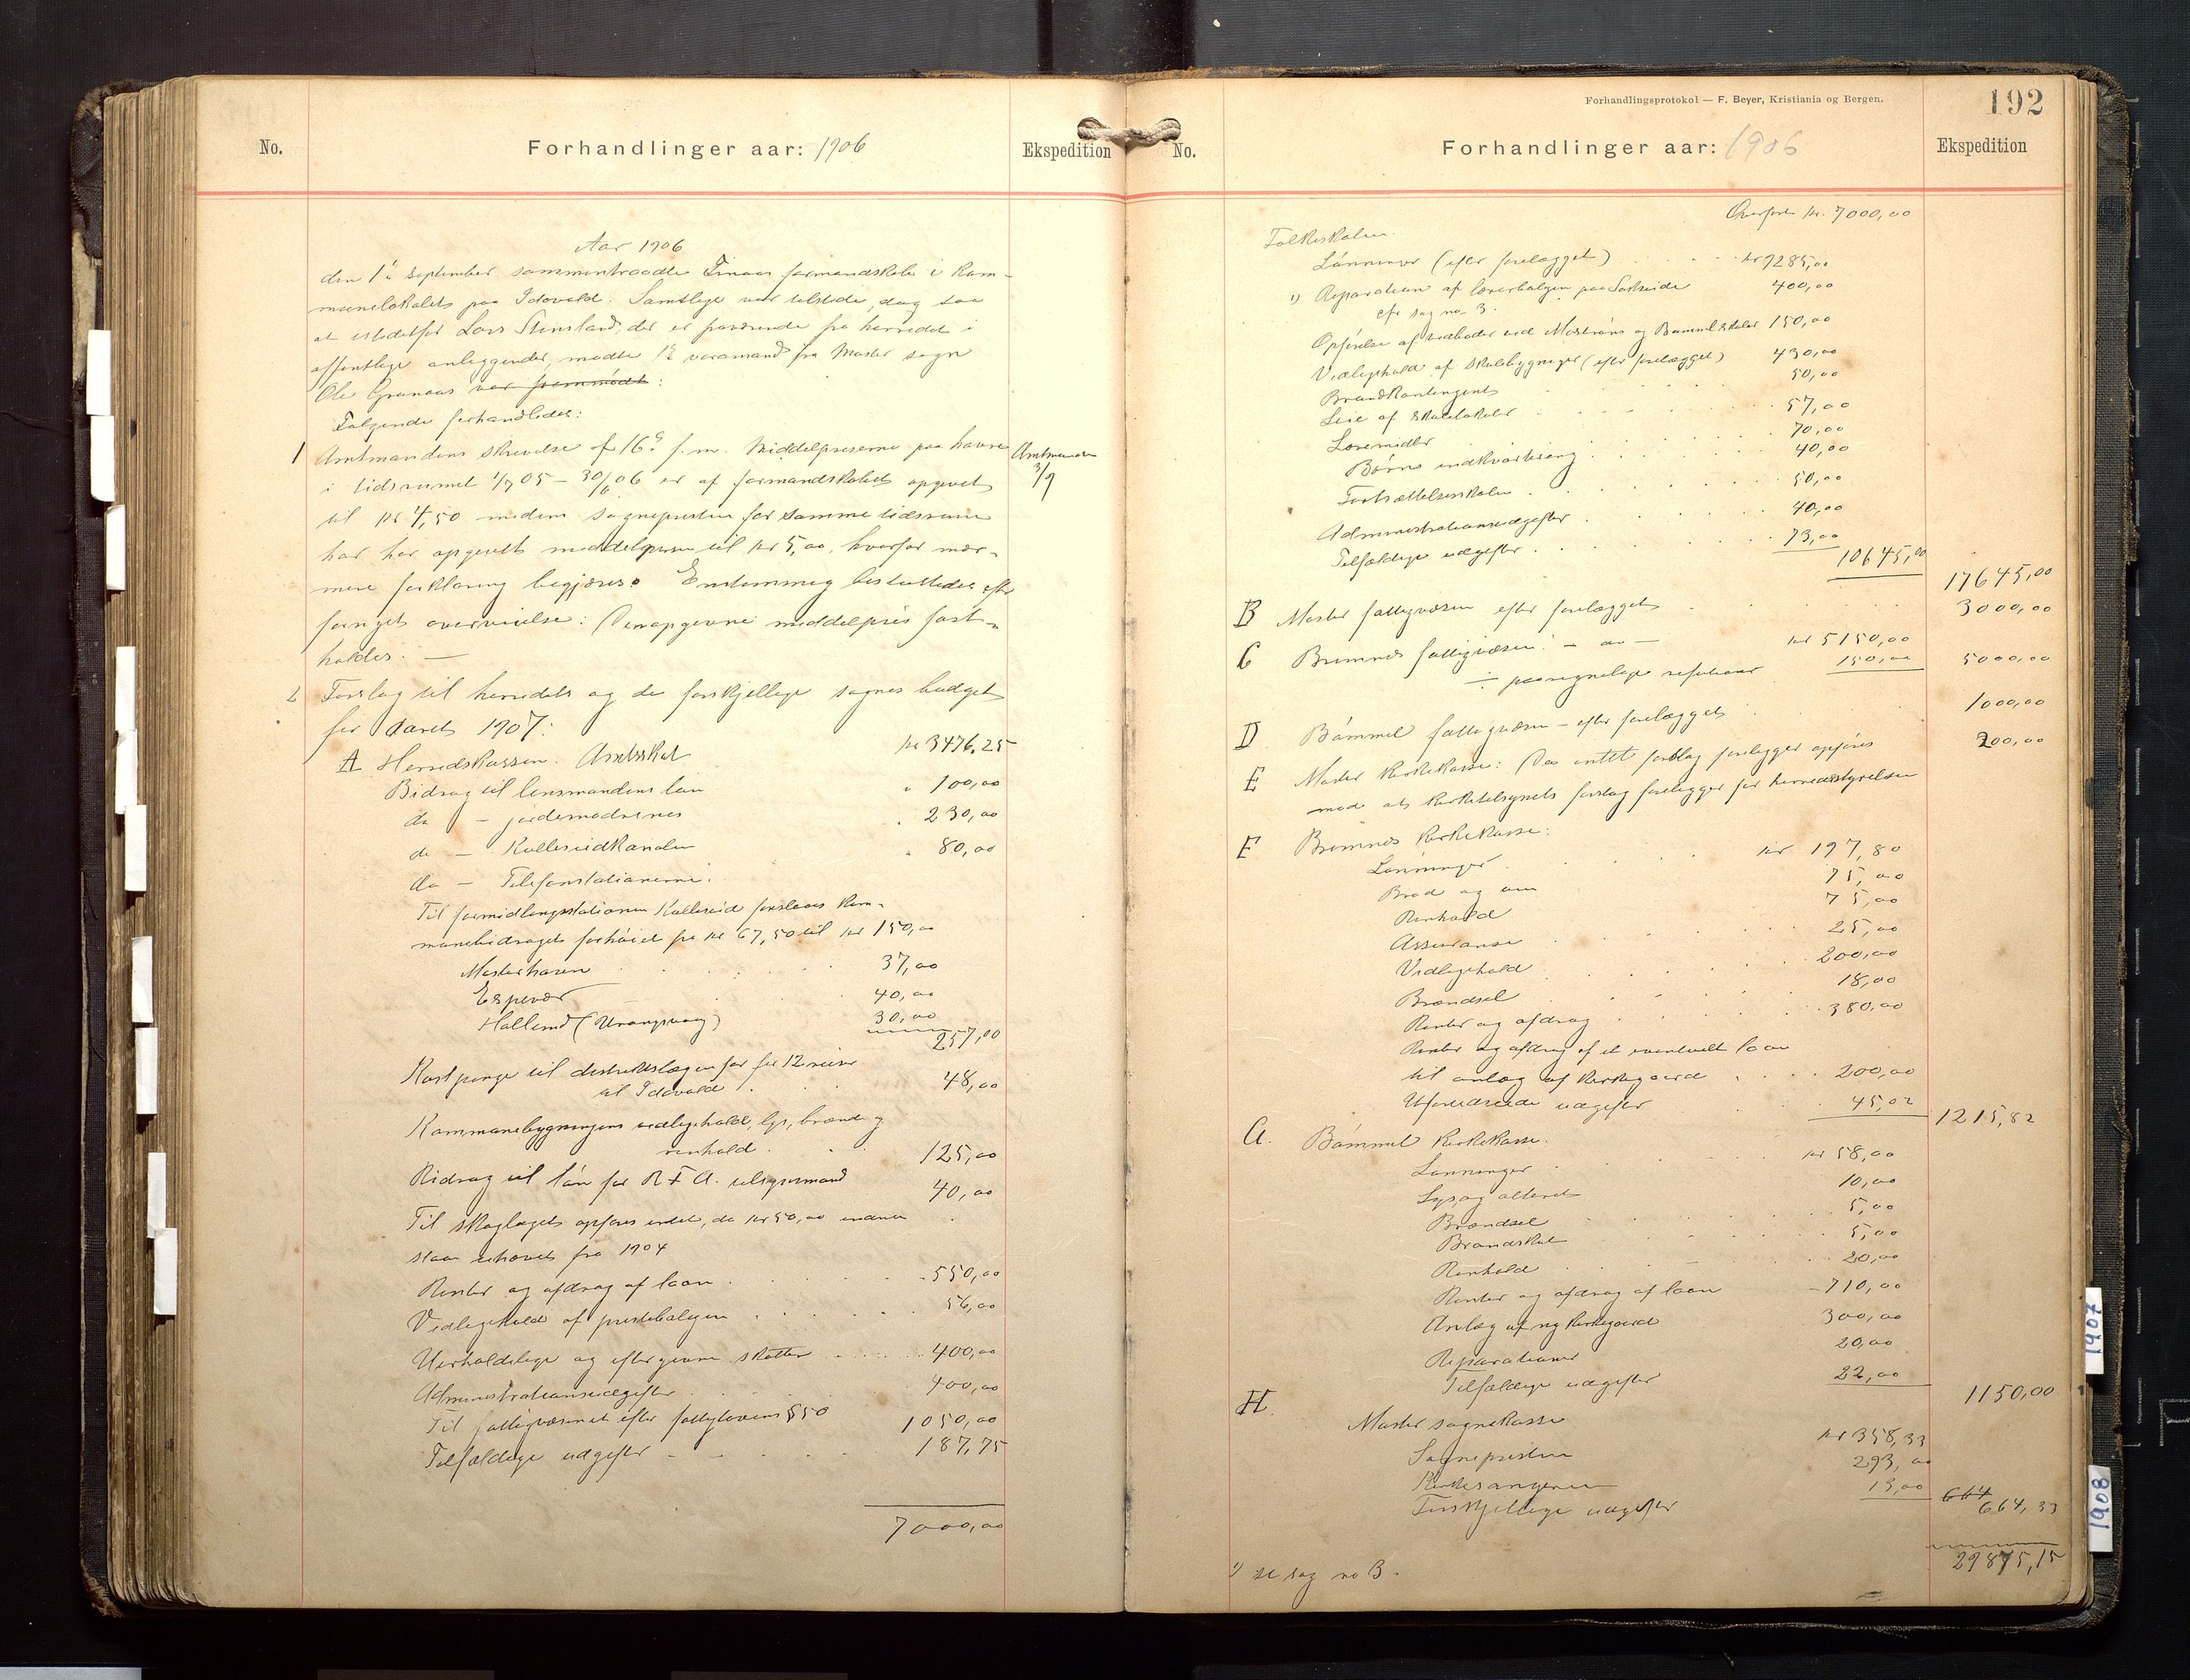 No.
Forhandlinger aar: 1906
Ekspedition
Aar 1906
den 1ste september sammentraadte Finaas formandskab i kom-
munelokalet paa Idavold. Samtlige var tilstede, dog saa
at istedetfor Lars Stensland, der er fraværende fra herredet i
offentlige anliggender, mødte 1ste varamand fra Moster sogn
Ole Granaas var fremmødt:
Følgende forhandledes:
1 Amtmandens skrivelse af 16de f. m. Middelpriserne paa havre
Amtmanden
3/9
i tidsrummet 1/7 05 – 30/6 06 er af formandskabet opgivet
til kr 4,50 medens sognepresten for samme tidsrum
har har opgivet middelprisen til kr 5,00, hvorfor nær-
mere forklaring begjæres. Enstemmig besluttedes efter
fornyet overveielse: Den opgivne middelpris fast-
holdes. —
2 Forslag til herredets og de forskjellige sognes budget
for aaret 1907:
A Herredskassen. Amtsskat kr 3476,25
Bidrag til lensmandens løn " 100,00
do – jordemødrenes " 230,00
do – Kulleseidkanalen " 80,00
do – Telefonstationerne:
Til formidlingsstationen Kulleseid foreslaaes kom-
munebidraget forhøiet fra kr 67,50 til kr 150,00
Mosterhavn 37,00
Espevær 40,00
Hallund (Urangsvaag) 30,00
257,00
Kostpenge til distriktslægen for 12 reiser
til Idavold 48,00
Kommunebygningens vedligehold, lys, brænde og
renhold 125,00
Bidrag til løn for R F A. tilsynsmand 40,00
Til skoglaget opføres intet, da kr 50,00 endnu
staar uhævet fra 1904
Renter og afdrag af laan 550,00
Vedligehold af prestebolgen 56,00
Uerholdelige og eftergivne skatter 400,00
Administrationsudgifter 400,00
Til fattigvæsenet efter fattiglovens § 50 1050,00
Tilfældige udgifter 187,75
7000,00
Forhandlingsprotokol — F. Beyer, Kristiania og Bergen.
192
No.
Forhandlinger aar: 1906
Ekspedition
Overført kr. 7000,00
Folkeskolen.
Lønninger (efter forelægget) kr 9285,00
1) Reparation af lærerbolgen paa Sortveide 400,00
cfr sag no. 3.
Opførelse af vedboder ved Mostrøns og Bømmel skoler 150,00
Vedligehold af skolebygninger (efter forelægget) 430,00
Brandkontingent 50,00
Leie af skolelokaler 57,00
Læremidler 70,00
Børns indkvartering 40,00
Fortsættelsesskolen 50,00
Administrationsudgifter 40,00
Tilfældige udgifter 73,00
10645,00
17645,00
B Moster fattigvæsen efter forelægget 3000,00
C Bremnes fattigvæsen: – do – kr 5150,00
÷ paaregnelige refusioner 150,00 5000,00
D Bømmel fattigvæsen – efter forelægget 1000,00
E Moster kirkekasse: Da intet forslag foreligger opføres 200,00
mod at kirketilsynets forslag foreligger for herredsstyrelsen
F Bremnes kirkekasse:
Lønninger kr 197,80
Brød og vin 75,00
Renhold 75,00
Assurance 25,00
Vedligehold 200,00
Brændsel 18,00
Renter og afdrag 380,00
Renter og afdrag af et eventuelt laan
til anlæg af kirkegaard 200,00
Uforudseede udgifter 45,02
1215,82
G. Bømmel kirkekasse:
Lønninger kr 58,00
Lys og alteret 10,00
Brændsel 5,00
Brandskat 5,00
Renhold 20,00
Renter og afdrag af laan 710,00
Anlæg af ny kirkegaard 300,00
Reparationer 20,00
Tilfældige udgifter 22,00
1150,00
H. Moster sognekasse
Sognepresten kr 358,33
Kirkesangeren 293,00
Forskjellige udgifter 13,00
664 664,33
29875,15
1) se sag no 3.
1907
1908